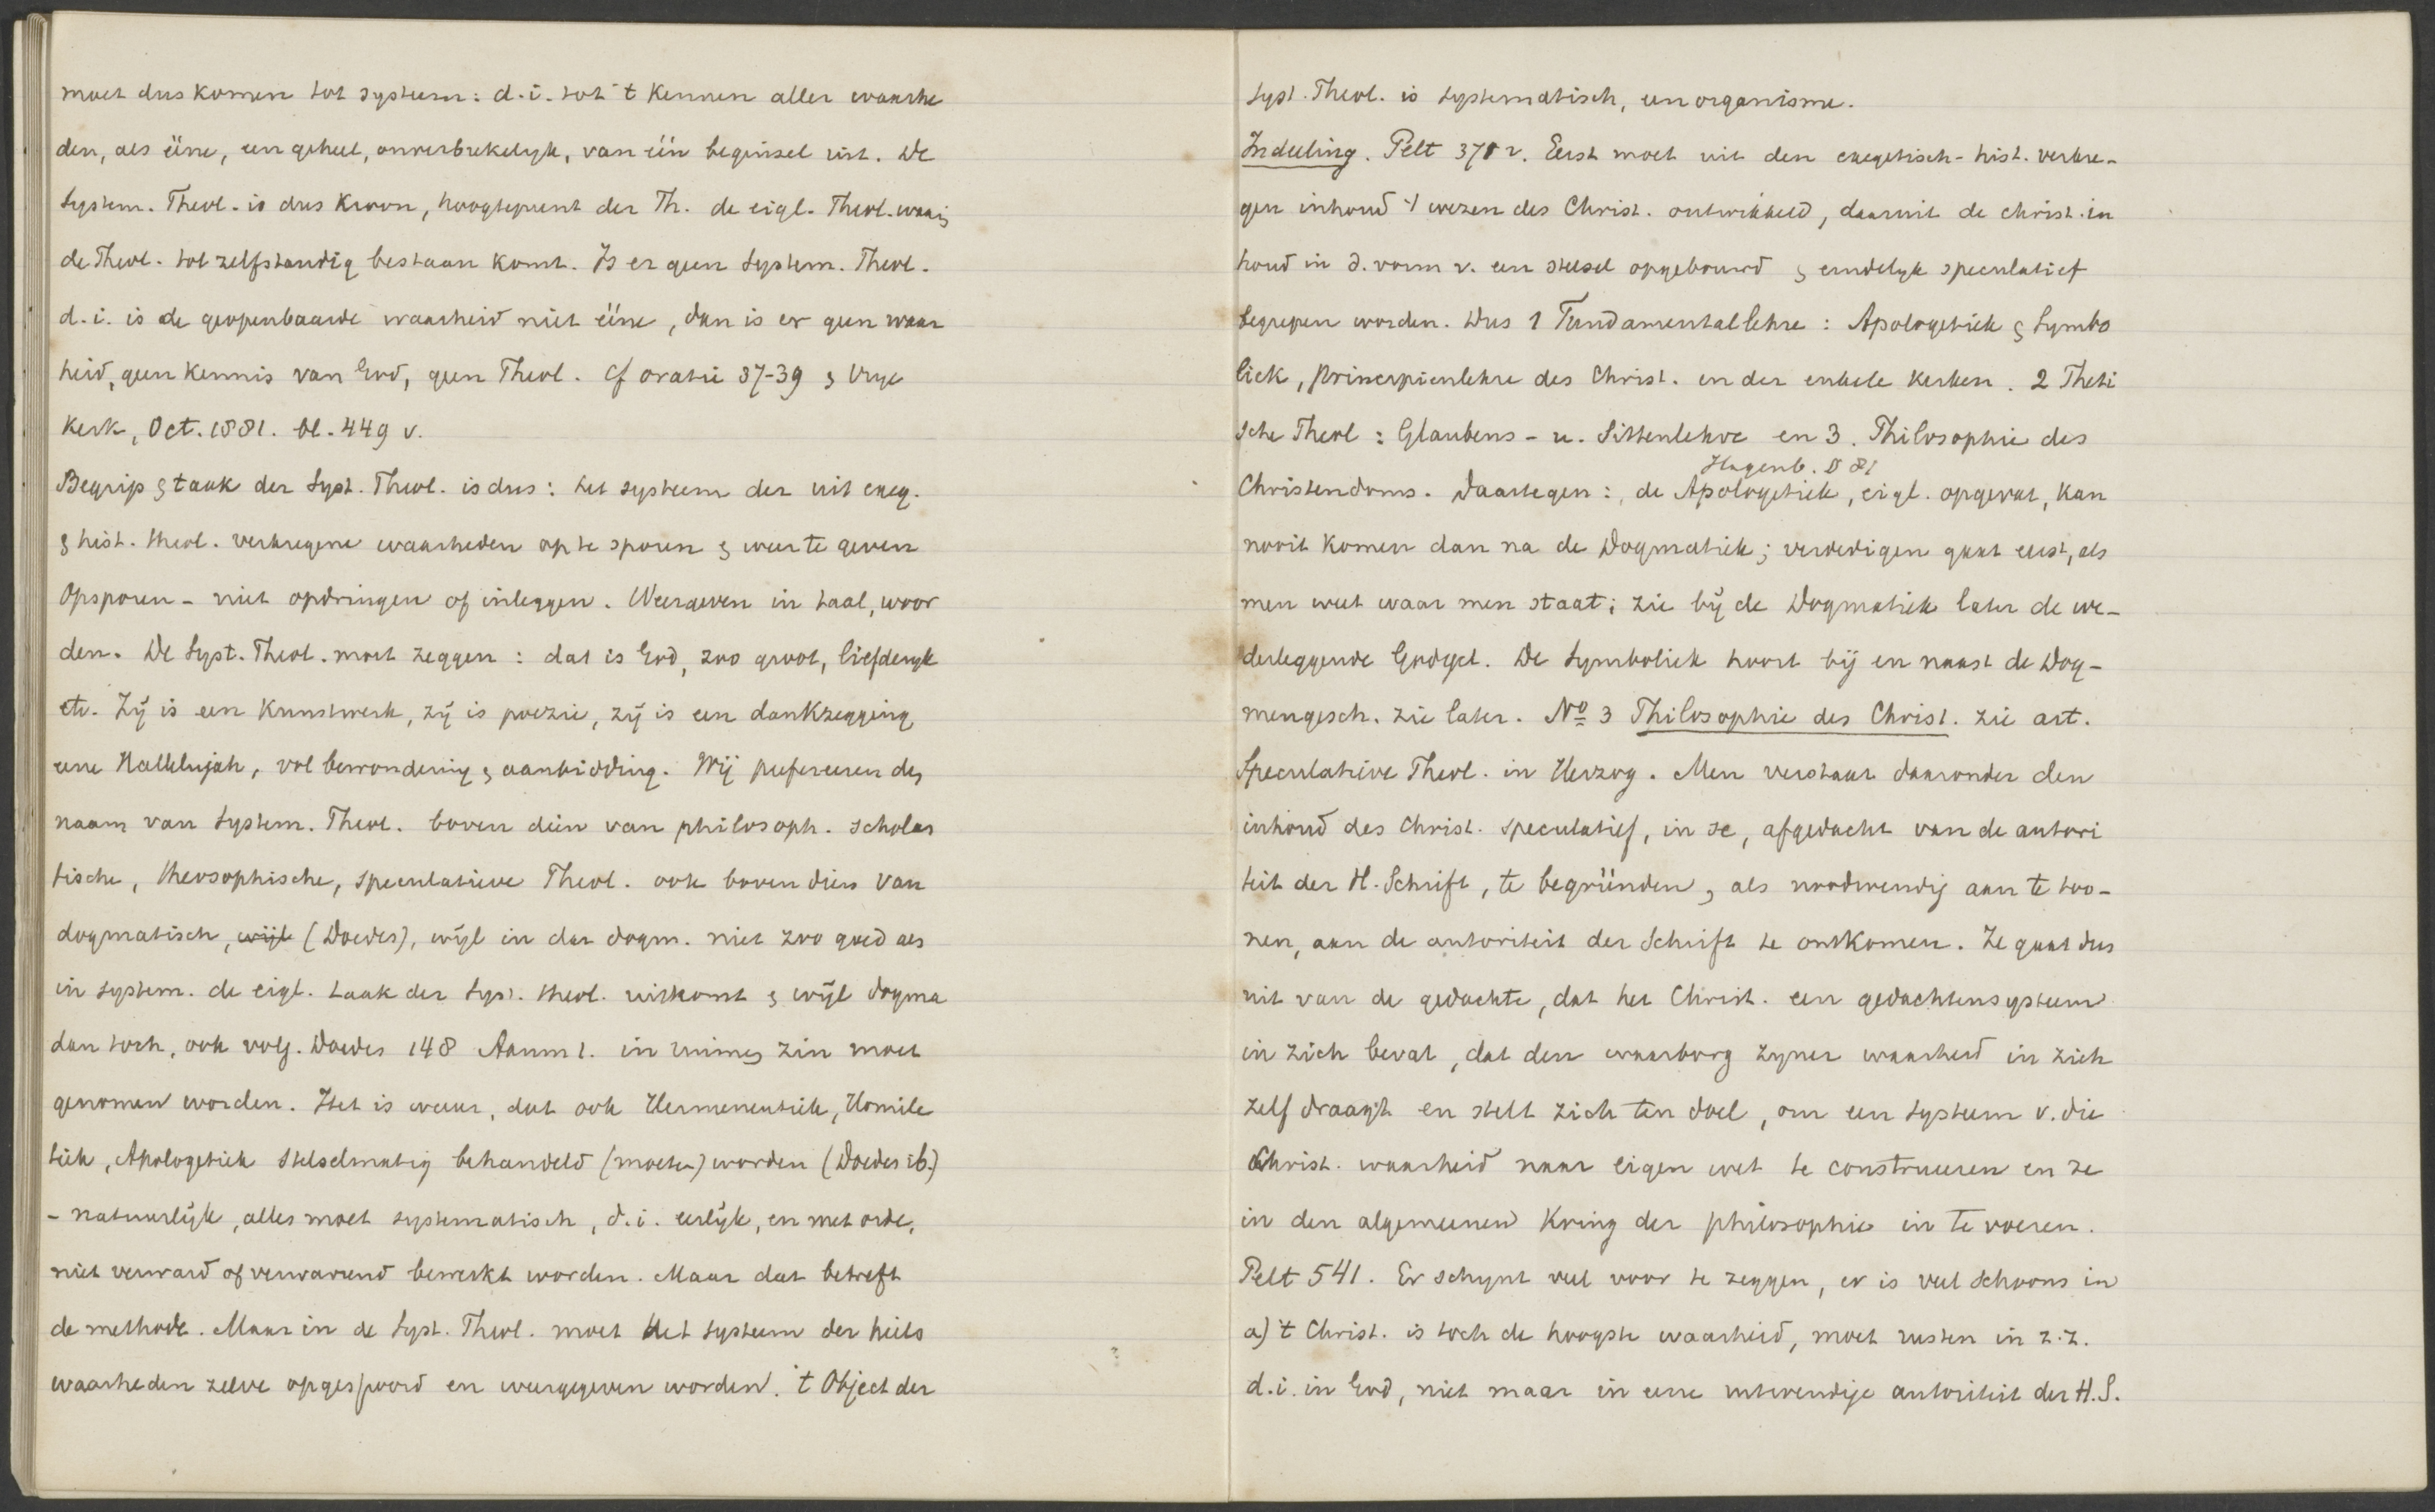 moet dus komen tot systeem: d.i. tot 't kennen aller waarhe
den, als ééne, een geheel, onverbrekelyk, van één beginsel uit. De
System. Theol. is dus kroon, hoogtepunt der Th. de eigl. Theol. waarin
de Theol. tot zelfstandig bestaan komt. Is er geen System. Theol.
d.i. is de geopenbaarde waarheid niet ééne, dan is er geen waar
heid, geen kennis van God, geen Theol. Cf oratie 37-39 & Vrije
Kerk, Oct. 1881. bl. 449 v.
Begrip & taak der Syst. Theol. is dus: het systeem der uit exeg.
& hist. theol. verkregene waarheden op te sporen & weer te geven
Opsporen - niet opdringen of inleggen. Weergeven in taal, woor
den. De Syst. Theol. moet zeggen: dat is God, zoo groot, liefderyk
etc. Zij is een kunstwerk, zij is poezie, zij is een dankzegging
eene Hallelujah, vol bewondering & aanbidding. Wij prefereeren den
naam van System. Theol. boven dien van philosoph. scholas
tische, theosophische, speculatieve Theol. ook boven dien van
dogmatisch, wijl (Doedes), wijl in dat dogm. niet zoo goed als
in system. de eigl. taak der Syst. theol. uitkomt & wijl dogma
dan toch, ook volg. Doedes 148 Aanm 1. in ruimen zin moet
genomen worden. Het is waar, dat ook Hermeneutiek, Homile
tiek, Apologetiek stelselmatig behandeld (moeten) worden (Doedes ib.)
- natuurlijk, alles moet systematisch, d.i. eerlijk, en met orde,
niet verward of verwarrend bewerkt worden. Maar dat betreft
de methode. Maar in de Syst. Theol. moet het systeem der heils
waarheden zelve opgespoord en weergegeven worden. 't Object der
Syst. Theol. is systematisch, een organisme.
Indeeling. Pelt 370 v. Eerst moet uit den exegetisch-hist. verkre-
gen inhoud 't wezen des Christ. ontwikkeld, daaruit de christ. in
houd in d. vorm v. een stelsel opgebouwd & eindelyk speculatief
begrepen worden. Dus 1 Fundamentallehre: Apologetiek & Symbo
liek, Principienlehre des Christ. en der enkele kerken. 2 Theti
sche Theol: Glaubens- u. Sittenlehre en 3. Philosophie des
Hagenb. § 81
Christendoms. Daartegen: de Apologetiek, eigl. opgevat, kan
nooit komen dan na de Dogmatiek; verdedigen gaat eerst, als
men weet waar men staat; zie bij de Dogmatiek later de we-
derleggende Godgel. De Symboliek hoort bij en naast de Dog-
mengesch. zie later. No 3 Philosophie des Christ. zie art.
Speculative Theol. in Herzog. Men verstaat daaronder den
inhoud des Christ. speculatief, in se, afgedacht van de autori
teit der H. Schrift, te begründen, als noodwendig aan te too-
nen, aan de autoriteit der Schrift te ontkomen. Ze gaat dus
uit van de gedachte, dat het Christ. een gedachtensysteem
in zich bevat, dat den waarborg zyner waarheid in zich
zelf draagt en stelt zich ten doel, om een systeem v. die
Christ. waarheid naar eigen wet te construeeren en ze
in den algemeenen kring der philosophie in te voeren.
Pelt 541. Er schynt veel voor te zeggen, er is veel schoons in
a) 't Christ. is toch de hoogste waarheid, moet rusten in z.z.
d.i. in God, niet maar in eene uitwendige autoriteit der H.S.